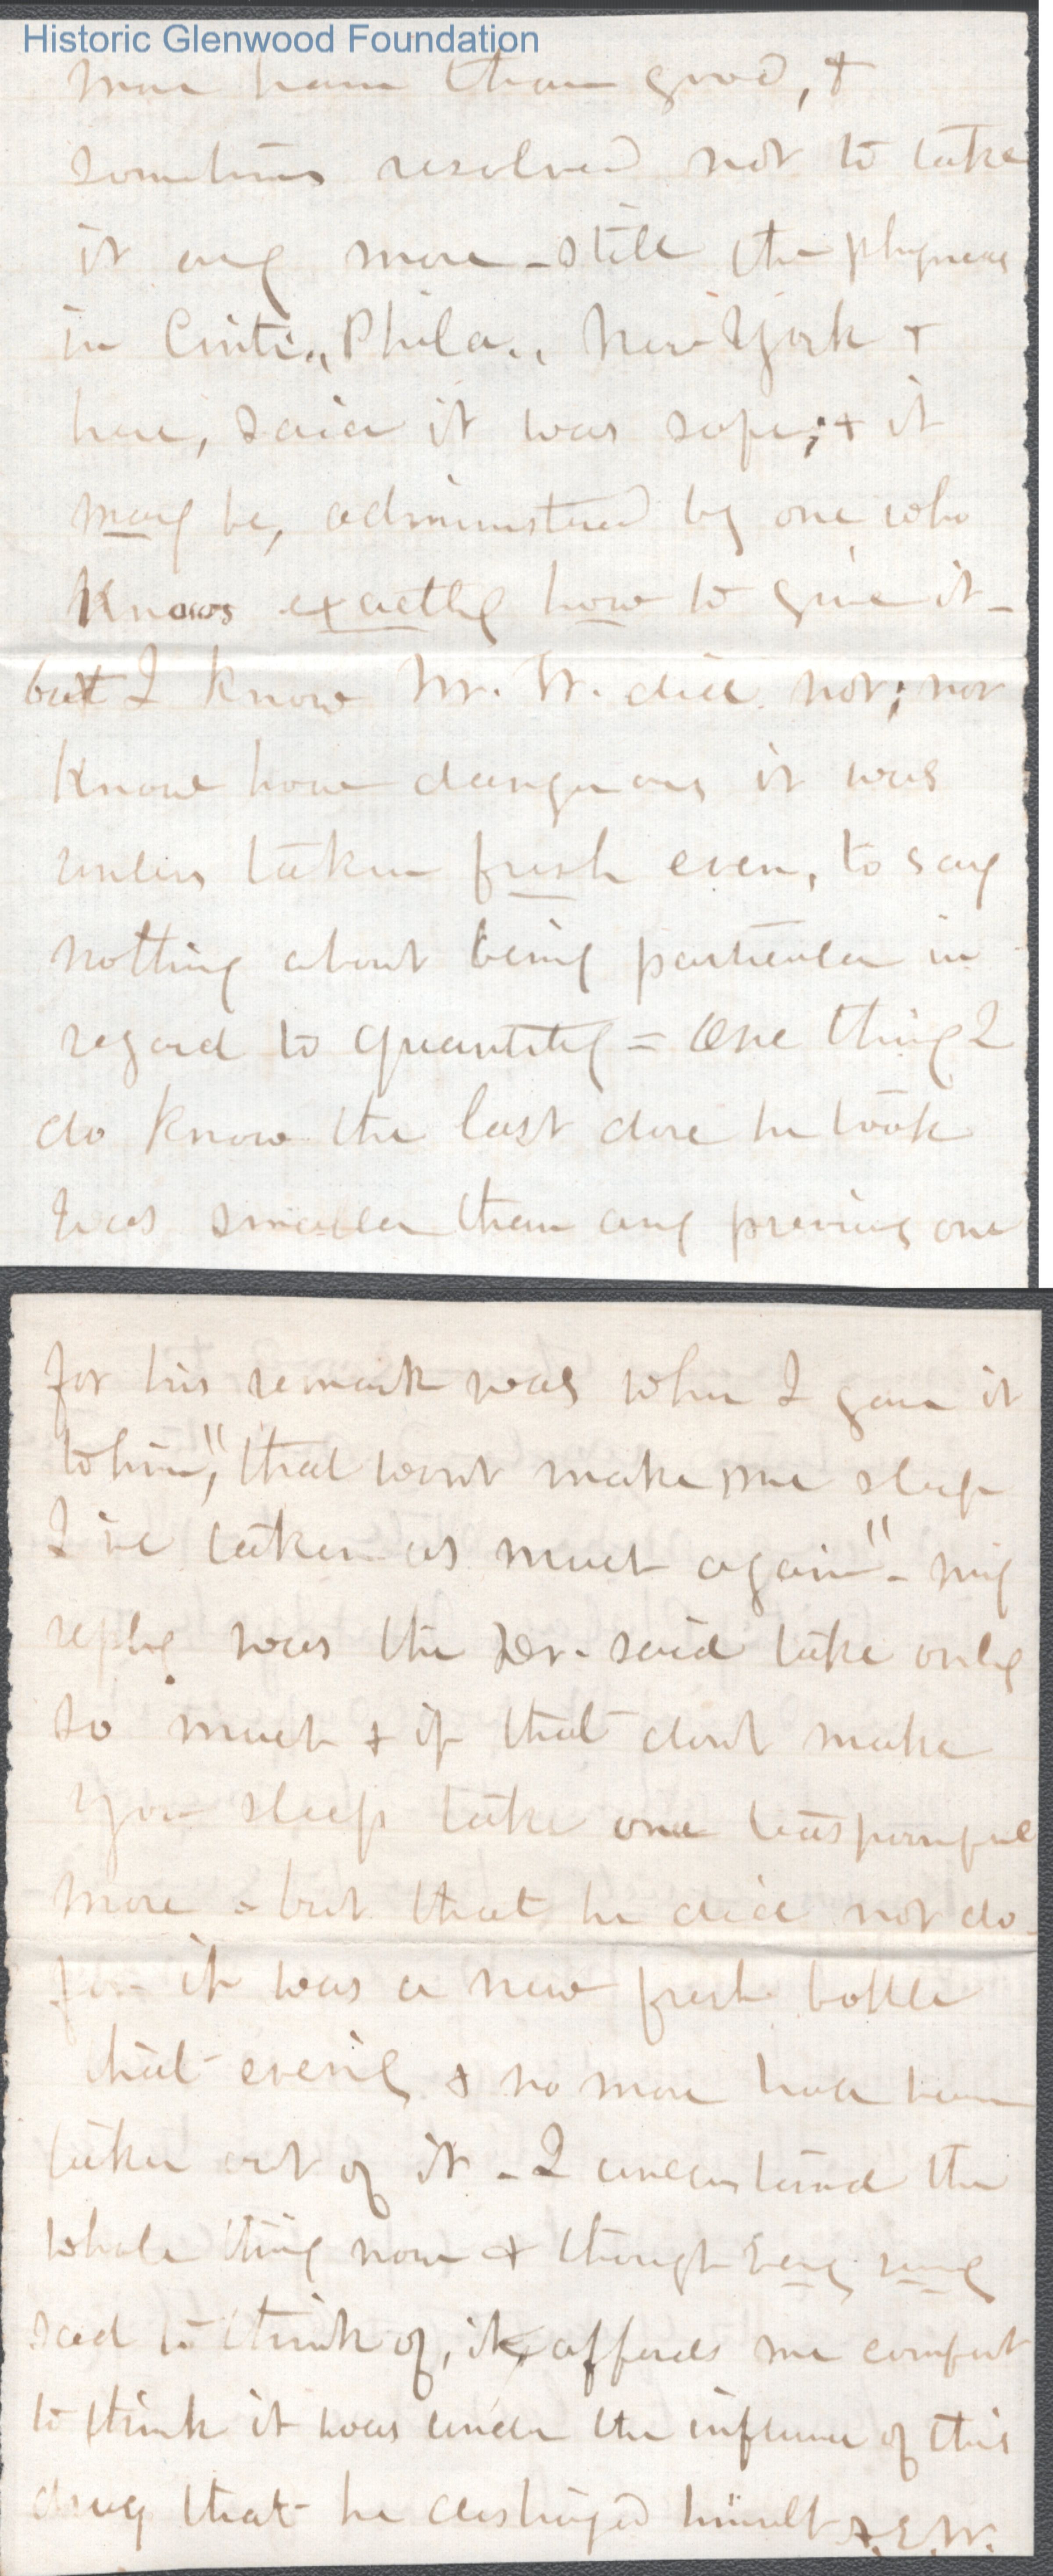 Historic Glenwood Foundation
more harm than good, &
sometimes resolved not to take
it any more - still the physicians
in Cinti., Phila., New York &
here, said it was safe; & it
may be, administered by one who
knows exactly how to give it -
but I know Mr. W. did not; nor
know how dangerous it was
unless taken fresh even, to say
nothing about being particular in
regard to quantity = One thing I
do know the last dose he took
was smaller than any previous one
for his remark was when I gave it
to him, "that wont make me sleep
I've taken as much again" - my
reply was the Dr. said take only
so much & if that dont make
you sleep take one teaspoonful
more - but that he did not do -
for it was a new fresh bottle
that evening & no more had been
taken out of it - I understand the
whole thing now & though very, very
sad to think of, it affords me comfort
to think it was under the influence of this
drug that he destroyed himself A.E.W.